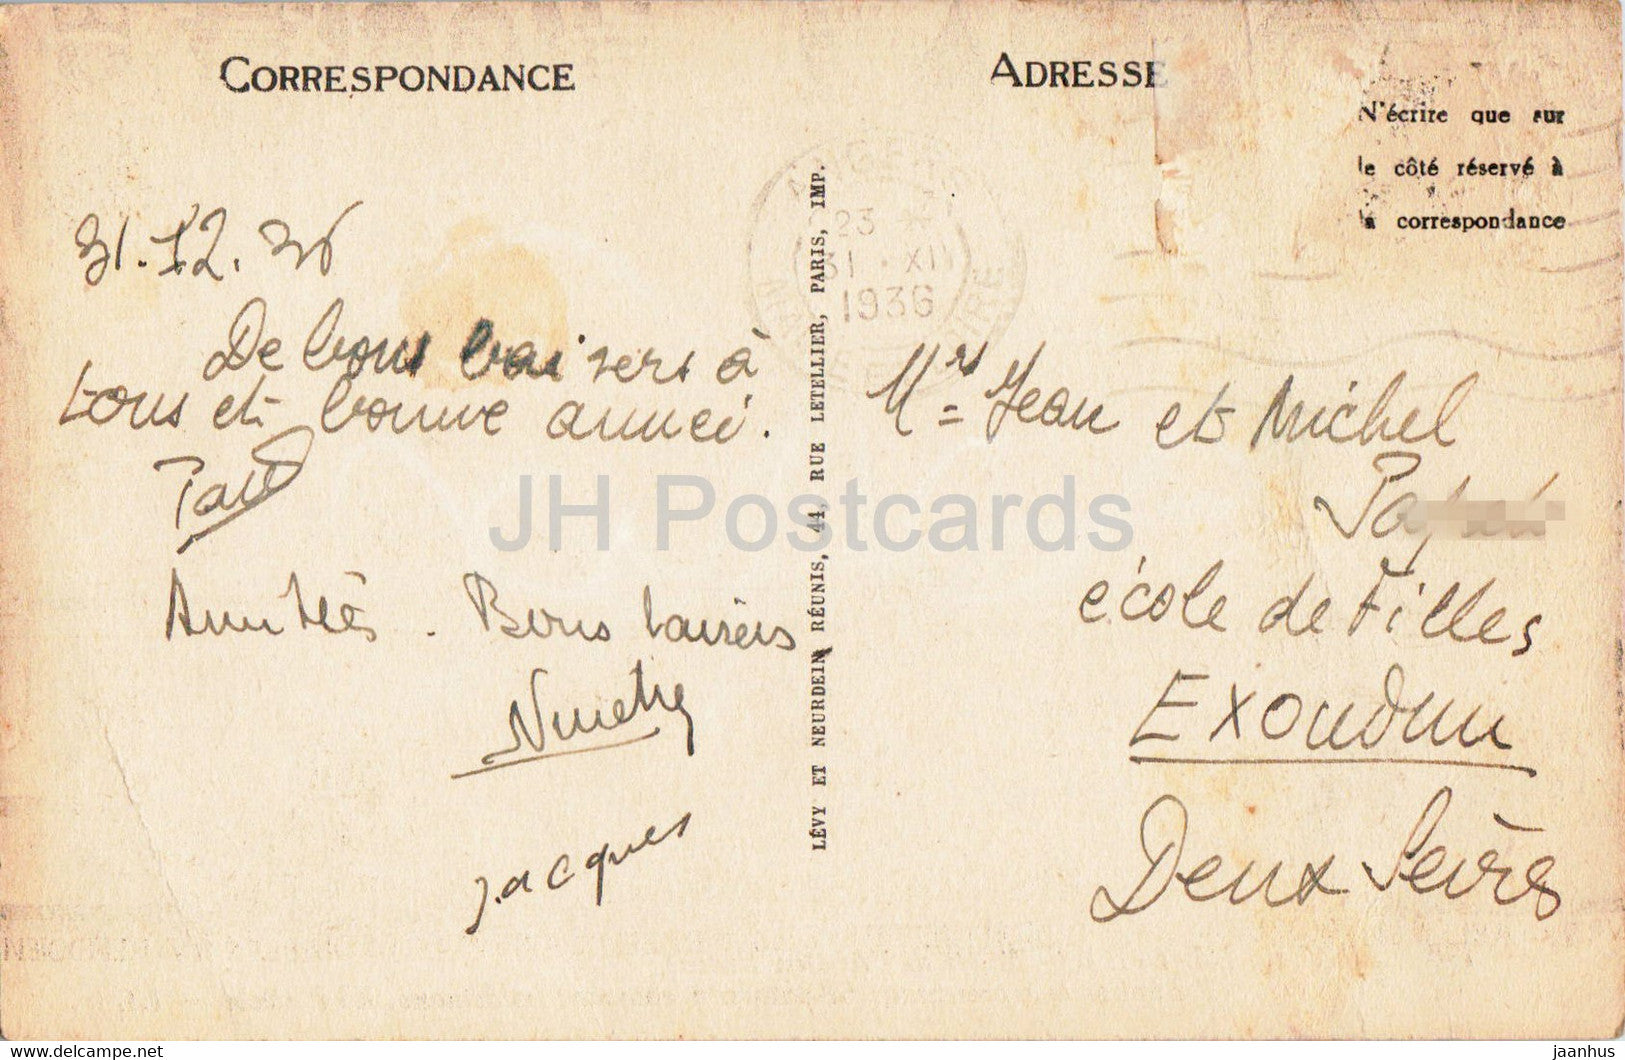 CORRESPONDANCE
ADRESSE
N'écrire que sur
le côté réservé à
la correspondance
31.12.36
De bons baisers à
tous et bonne année.
Paul
Amitiés. Bons baisers
Ninette
Jacques
LÉVY ET NEURDEIN RÉUNIS, 44, RUE LETELLIER, PARIS, IMP.
23
31 XII
1936
Mrs Jean et Michel
école de Filles
EXoudun
Deux Sèvres
JH Postcards
delcampe.net
jaanhus